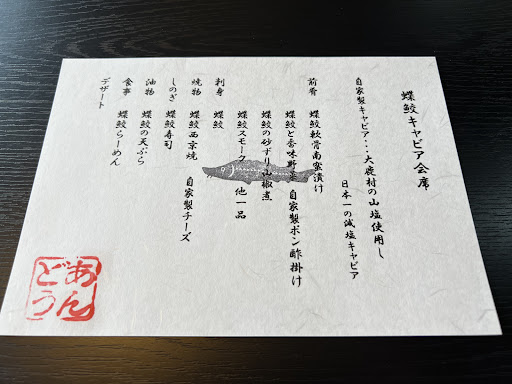 蝶鮫キャビア会席
自家製キャビア・・・大鹿村の山塩使用し
日本一の減塩キャビア
前肴 蝶鮫軟骨南蛮漬け
蝶鮫と香味野菜 自家製ポン酢掛け
蝶鮫の砂ずり山椒煮
蝶鮫スモーク 他一品
刺身 蝶鮫
焼物 蝶鮫西京焼 自家製チーズ
しのぎ 蝶鮫寿司
油物 蝶鮫の天ぷら
食事 蝶鮫らーめん
デザート
あん
どう